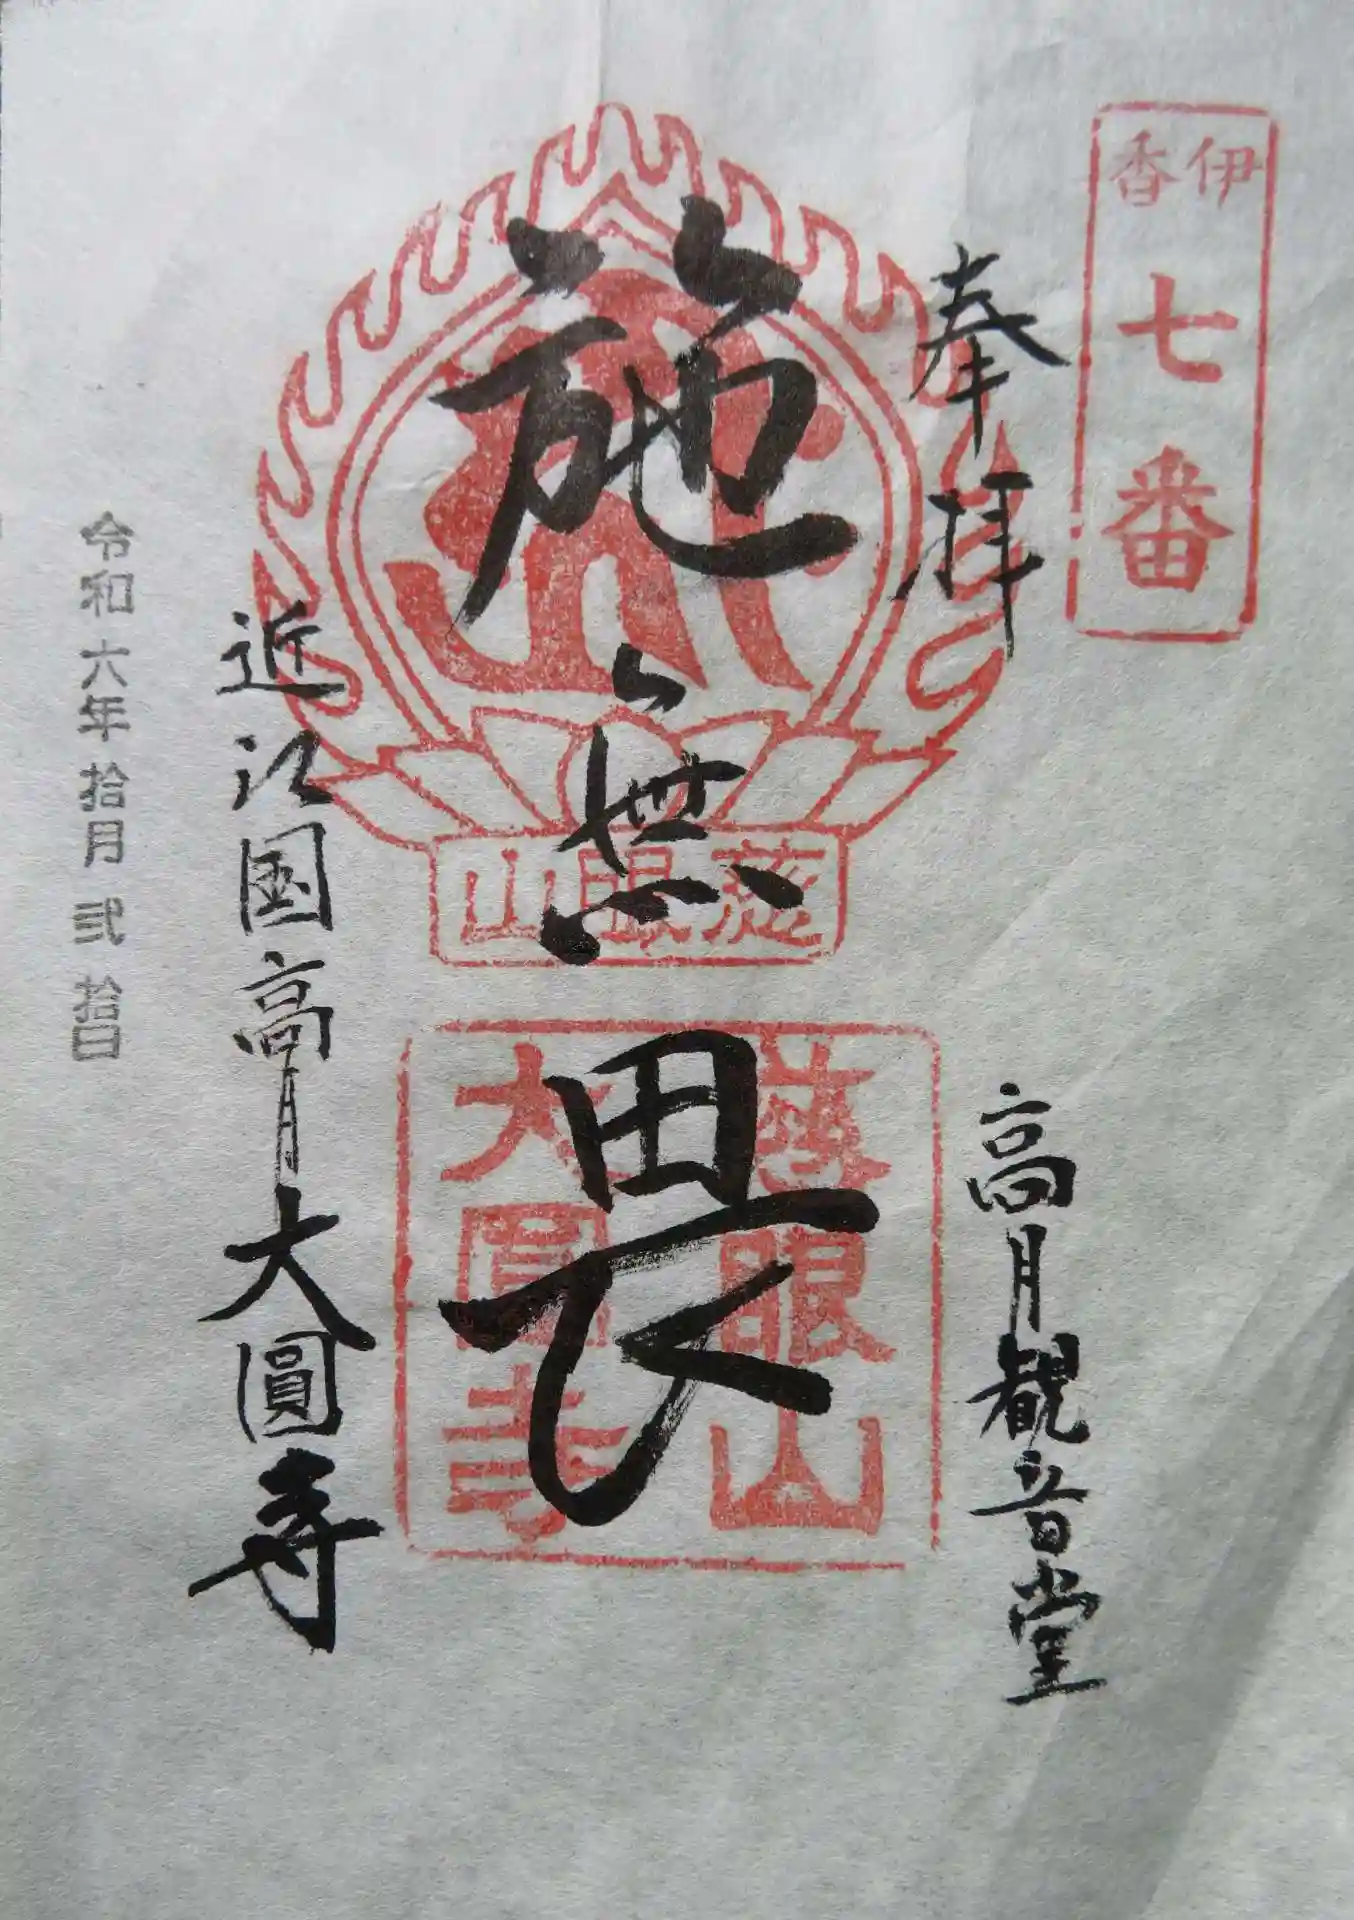 伊香
七番
奉拝
高月観音堂
施無畏
慈眼山
慈眼山
大圓寺
近江國高月大圓寺
令和六年拾月弐拾日